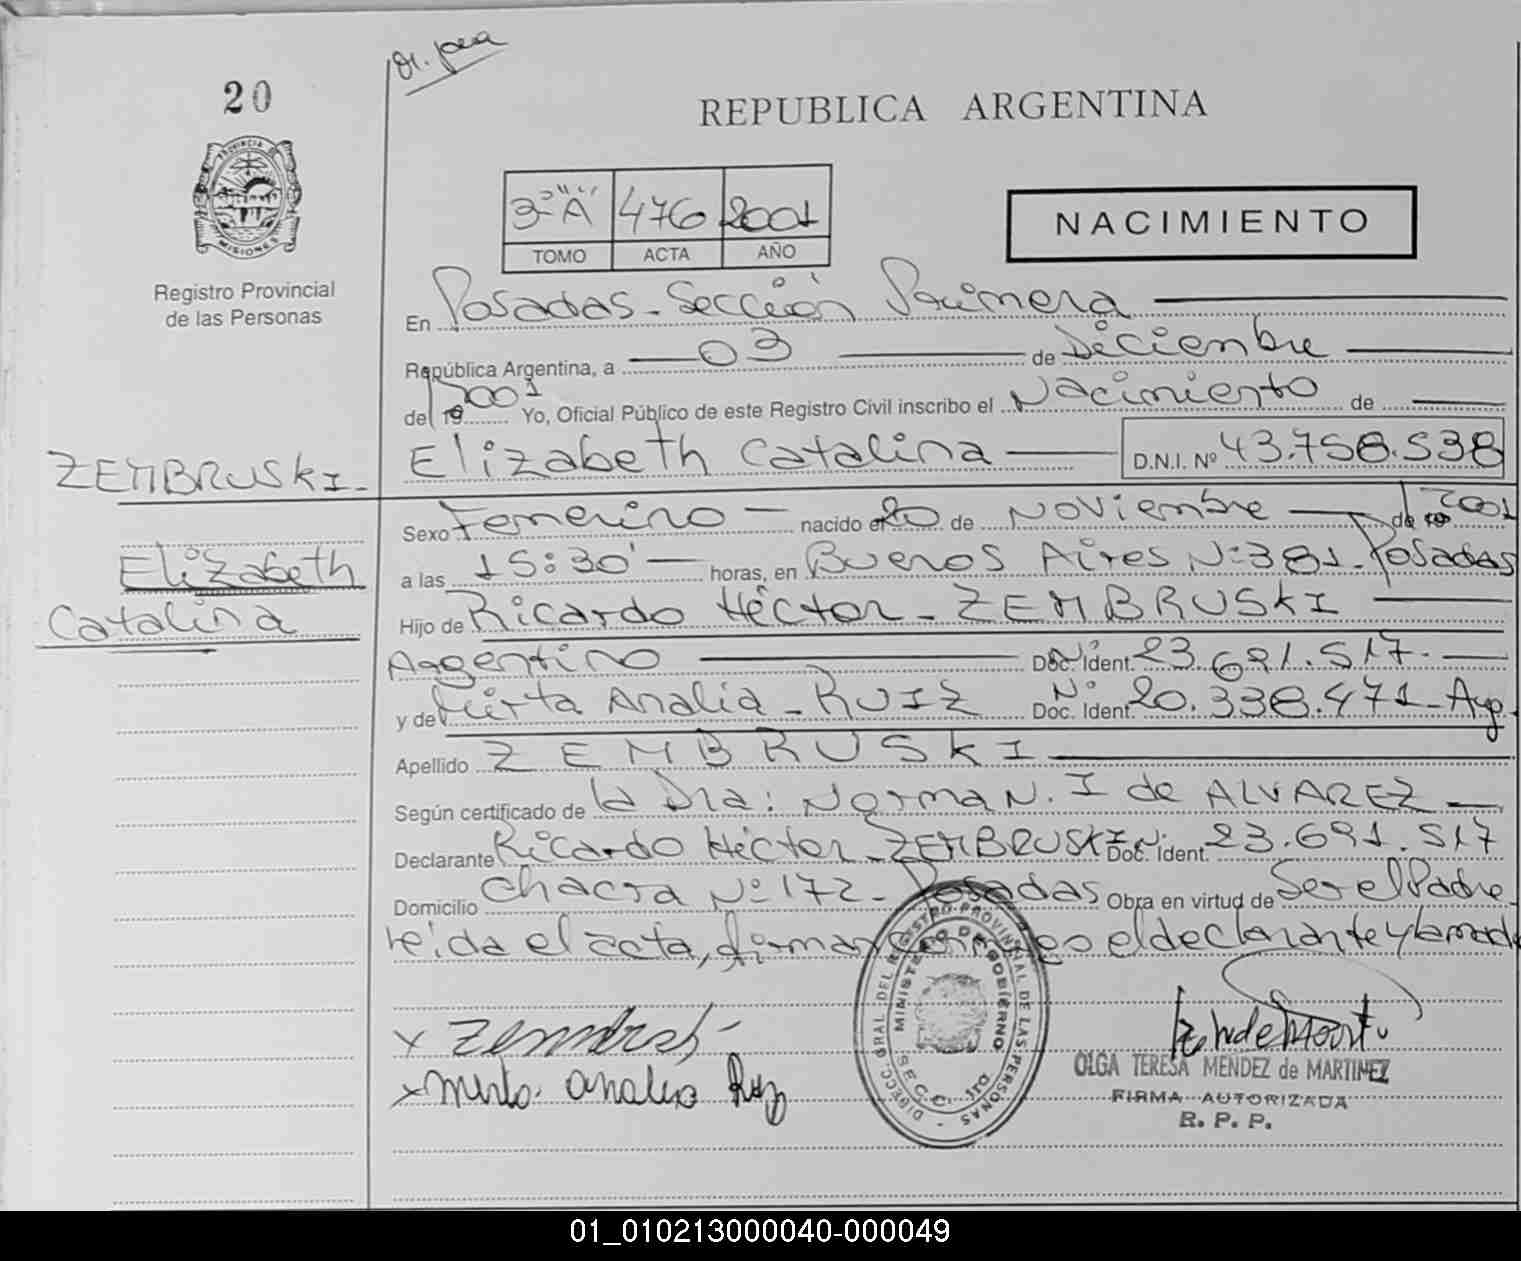 20
PROVINCIA
MISIONES
Registro Provincial
de las Personas
ZEMBRUSKI.
Elizabeth
Catalina
REPUBLICA ARGENTINA
3º "A" 476 2001
TOMO ACTA AÑO
NACIMIENTO
En Posadas - Sección Primera
República Argentina, a 03 de Diciembre
del 2001 Yo, Oficial Público de este Registro Civil inscribo el Nacimiento de
Elizabeth Catalina D.N.I. Nº 43.758.538
Sexo Femenino nacido el 20 de Noviembre de 2001
a las 15:30' horas, en Buenos Aires Nº 381 - Posadas
Hijo de Ricardo Héctor - ZEMBRUSKI
Argentino Doc. Ident. Nº 23.691.517.
y de Mirta Analia - RUIZ Doc. Ident. Nº 20.338.471 - Arg.
Apellido ZEMBRUSKI
Según certificado de la Dra: Norma N. I de ALVAREZ
Declarante Ricardo Héctor - ZEMBRUSKI Doc. Ident. Nº 23.691.517
Domicilio Chacra Nº 172 - Posadas Obra en virtud de Ser el Padre
leida el acta, firman conmigo el declarante y la madre
DIRECC. GRAL DEL REGISTRO PROVINCIAL DE LAS PERSONAS
MINISTERIO DE GOBIERNO
SECC. 1ra.
x Zembrus
x Mirta Analia Ruiz
OLGA TERESA MENDEZ de MARTINEZ
FIRMA AUTORIZADA
R. P. P.
01_010213000040-000049